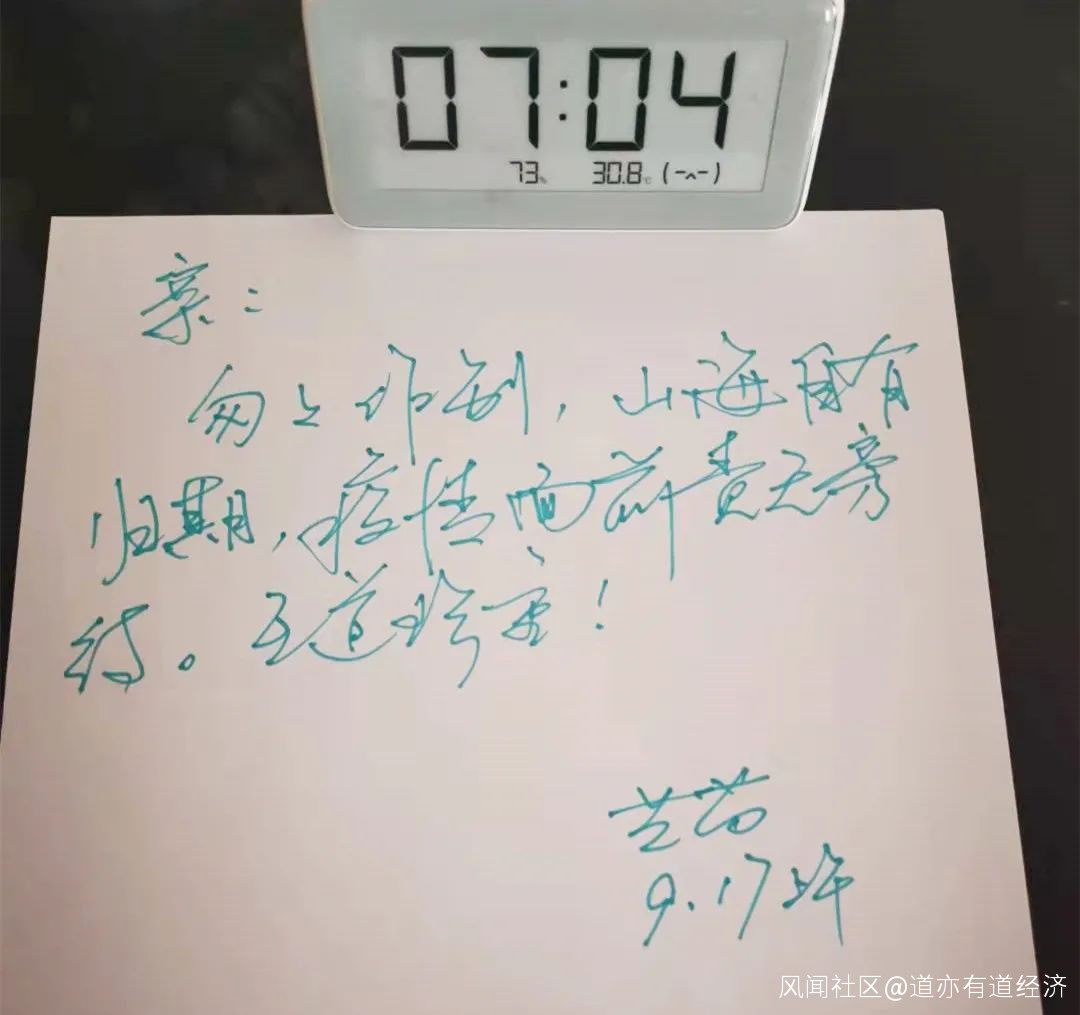 07:04
73% 30.8℃ (-^-)
亲:
匆匆作别,山海自有
归期,疫情面前责无旁
待。互道珍重!
9.17上午
风闻社区@道亦有道经济